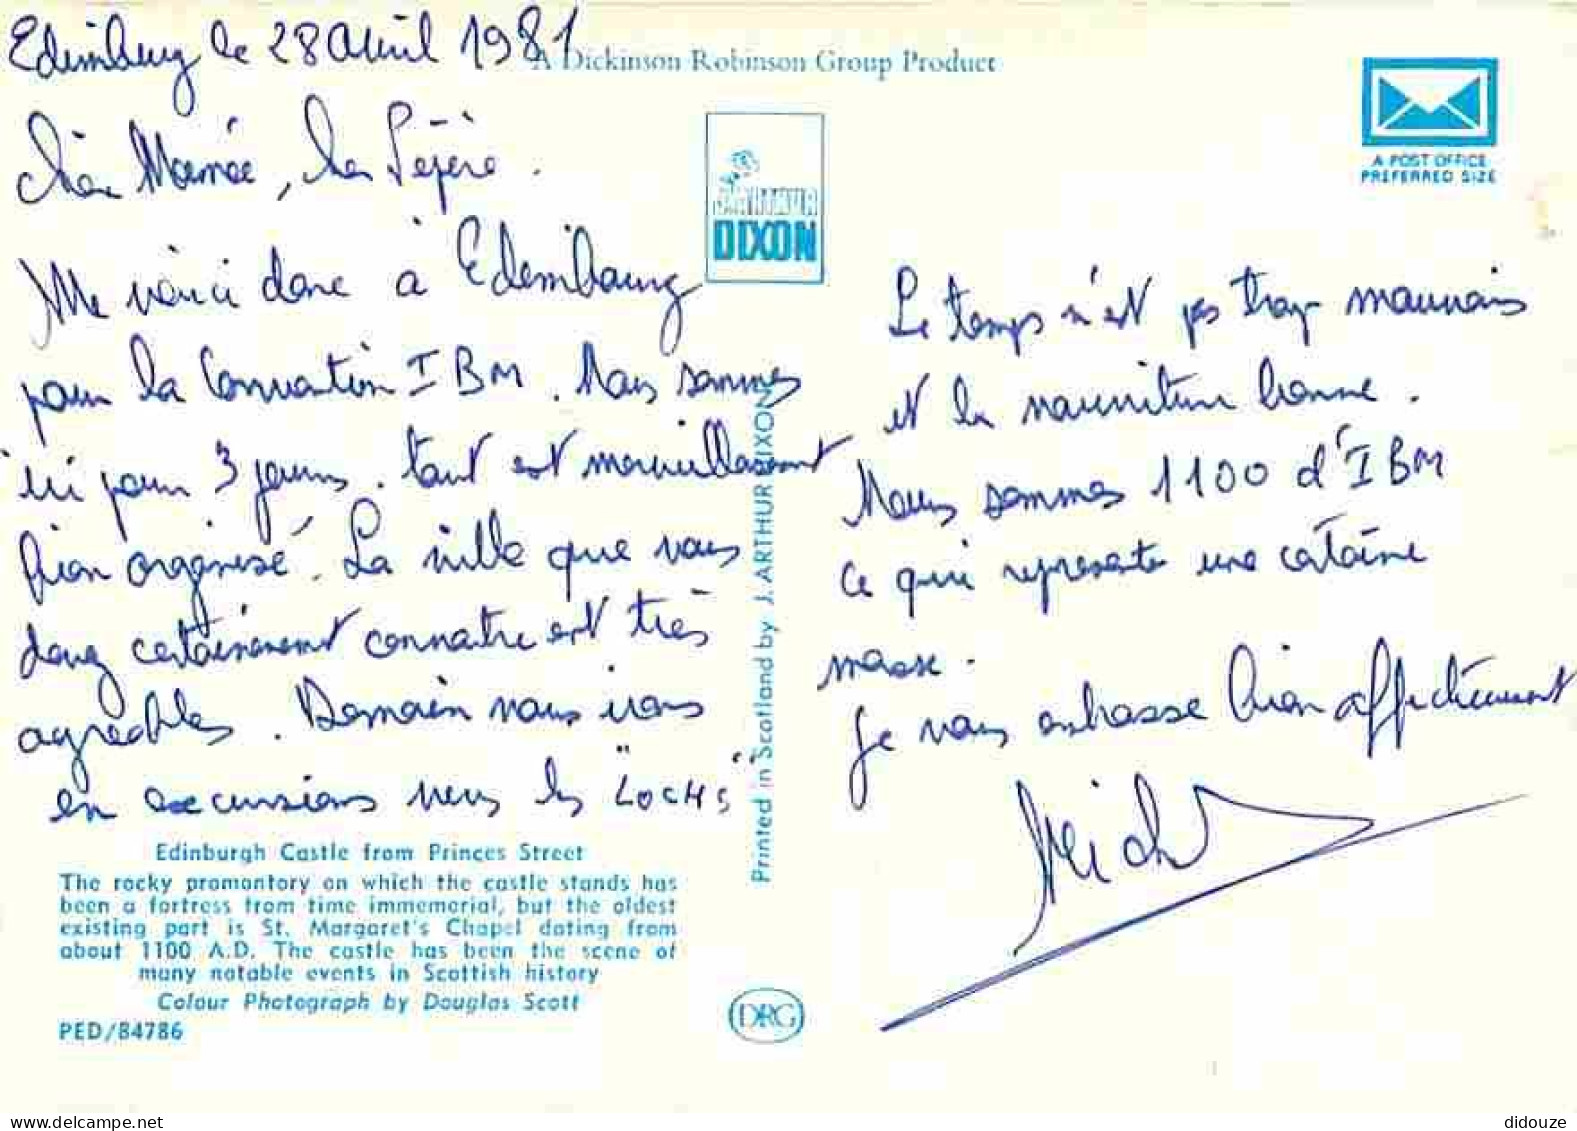 Edimburg le 28 Avril 1981
A Dickinson Robinson Group Product
A POST OFFICE
PREFERRED SIZE
J. ARTHUR
DIXON
Chère Mamée, cher Pépère.
Me voici donc à Edimbourg
pour la Convention IBM. Nous sommes
ici pour 3 jours. tout est merveilleusement
bien organisé. La ville que vous
devez certainement connaitre est très
agréable. Demain nous irons
en excursions vers les "LOCHS"
Printed in Scotland by J. ARTHUR DIXON
Le temps n'est pas trop mauvais
et la nourriture bonne.
Nous sommes 1100 d'IBM
ce qui représente une certaine
masse.
Je vous embrasse bien affectueusement
Mich
Edinburgh Castle from Princes Street
The rocky promontory on which the castle stands has
been a fortress from time immemorial, but the oldest
existing part is St. Margaret's Chapel dating from
about 1100 A.D. The castle has been the scene of
many notable events in Scottish history
Colour Photograph by Douglas Scott
PED/84786
DRG
delcampe.net
didouze